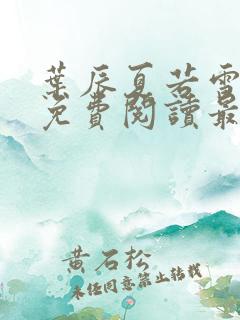 葉辰夏若雪
免費閱讀最
黃石松
未經同意禁止轉載